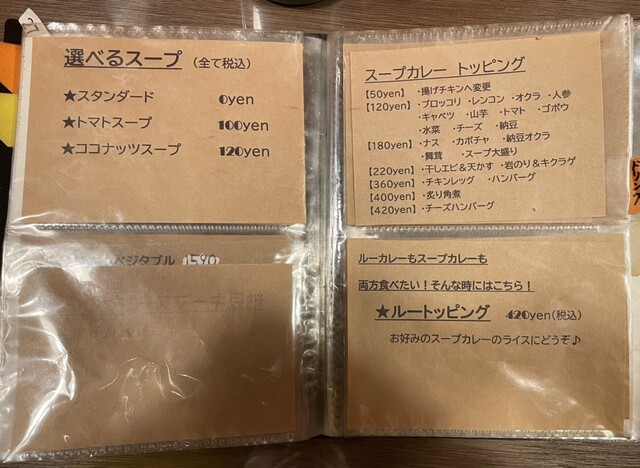 選べるスープ (全て税込)
★スタンダード 0yen
★トマトスープ 100yen
★ココナッツスープ 120yen
ベジタブル 1590
スープカレー トッピング
【50yen】 ・揚げチキンへ変更
【120yen】 ・ブロッコリ ・レンコン ・オクラ ・人参
・キャベツ ・山芋 ・トマト ・ゴボウ
・水菜 ・チーズ ・納豆
【180yen】 ・ナス ・カボチャ ・納豆オクラ
・舞茸 ・スープ大盛り
【220yen】 ・干しエビ&天かす ・岩のり&キクラゲ
【360yen】 ・チキンレッグ ・ハンバーグ
【400yen】 ・炙り角煮
【420yen】 ・チーズハンバーグ
ルーカレーもスープカレーも
両方食べたい!そんな時にはこちら!
★ルートッピング 420yen(税込)
お好みのスープカレーのライスにどうぞ♪